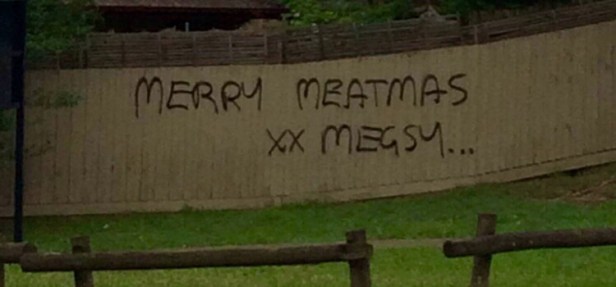 MERRY MEATMAS
XX MEGSY...